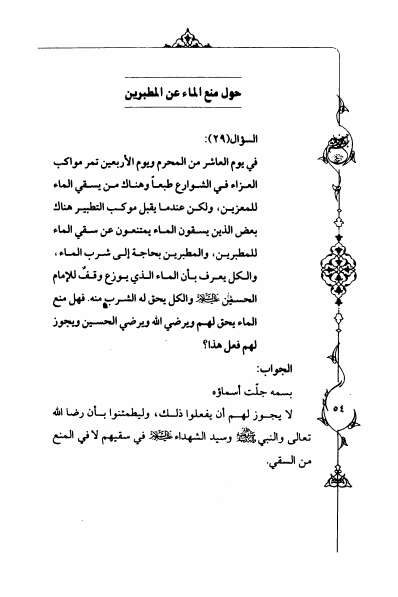 حول منع الماء عن المطبرين
السؤال(٢٩):
في يوم العاشر من المحرم ويوم الأربعين تمر مواكب
العزاء في الشوارع طبعاً وهناك من يسقي الماء
للمعزين، ولكن عندما يقبل موكب التطبير هناك
بعض الذين يسقون الماء يمتنعون عن سقي الماء
للمطبرين، والمطبرين بحاجة إلى شرب الماء،
والكل يعرف بأن الماء الذي يوزع وقفٌ للإمام
الحسين عليه السلام والكل يحق له الشرب منه. فهل منع
الماء يحق لهم ويرضي الله ويرضي الحسين ويجوز
لهم فعل هذا؟
الجواب:
بسمه جلّت أسماؤه
لا يجوز لهم أن يفعلوا ذلك، وليطمئنوا بأن رضا الله
تعالى والنبي ﷺ وسيد الشهداء عليه السلام في سقيهم لا في المنع
من السقي.
٥٤